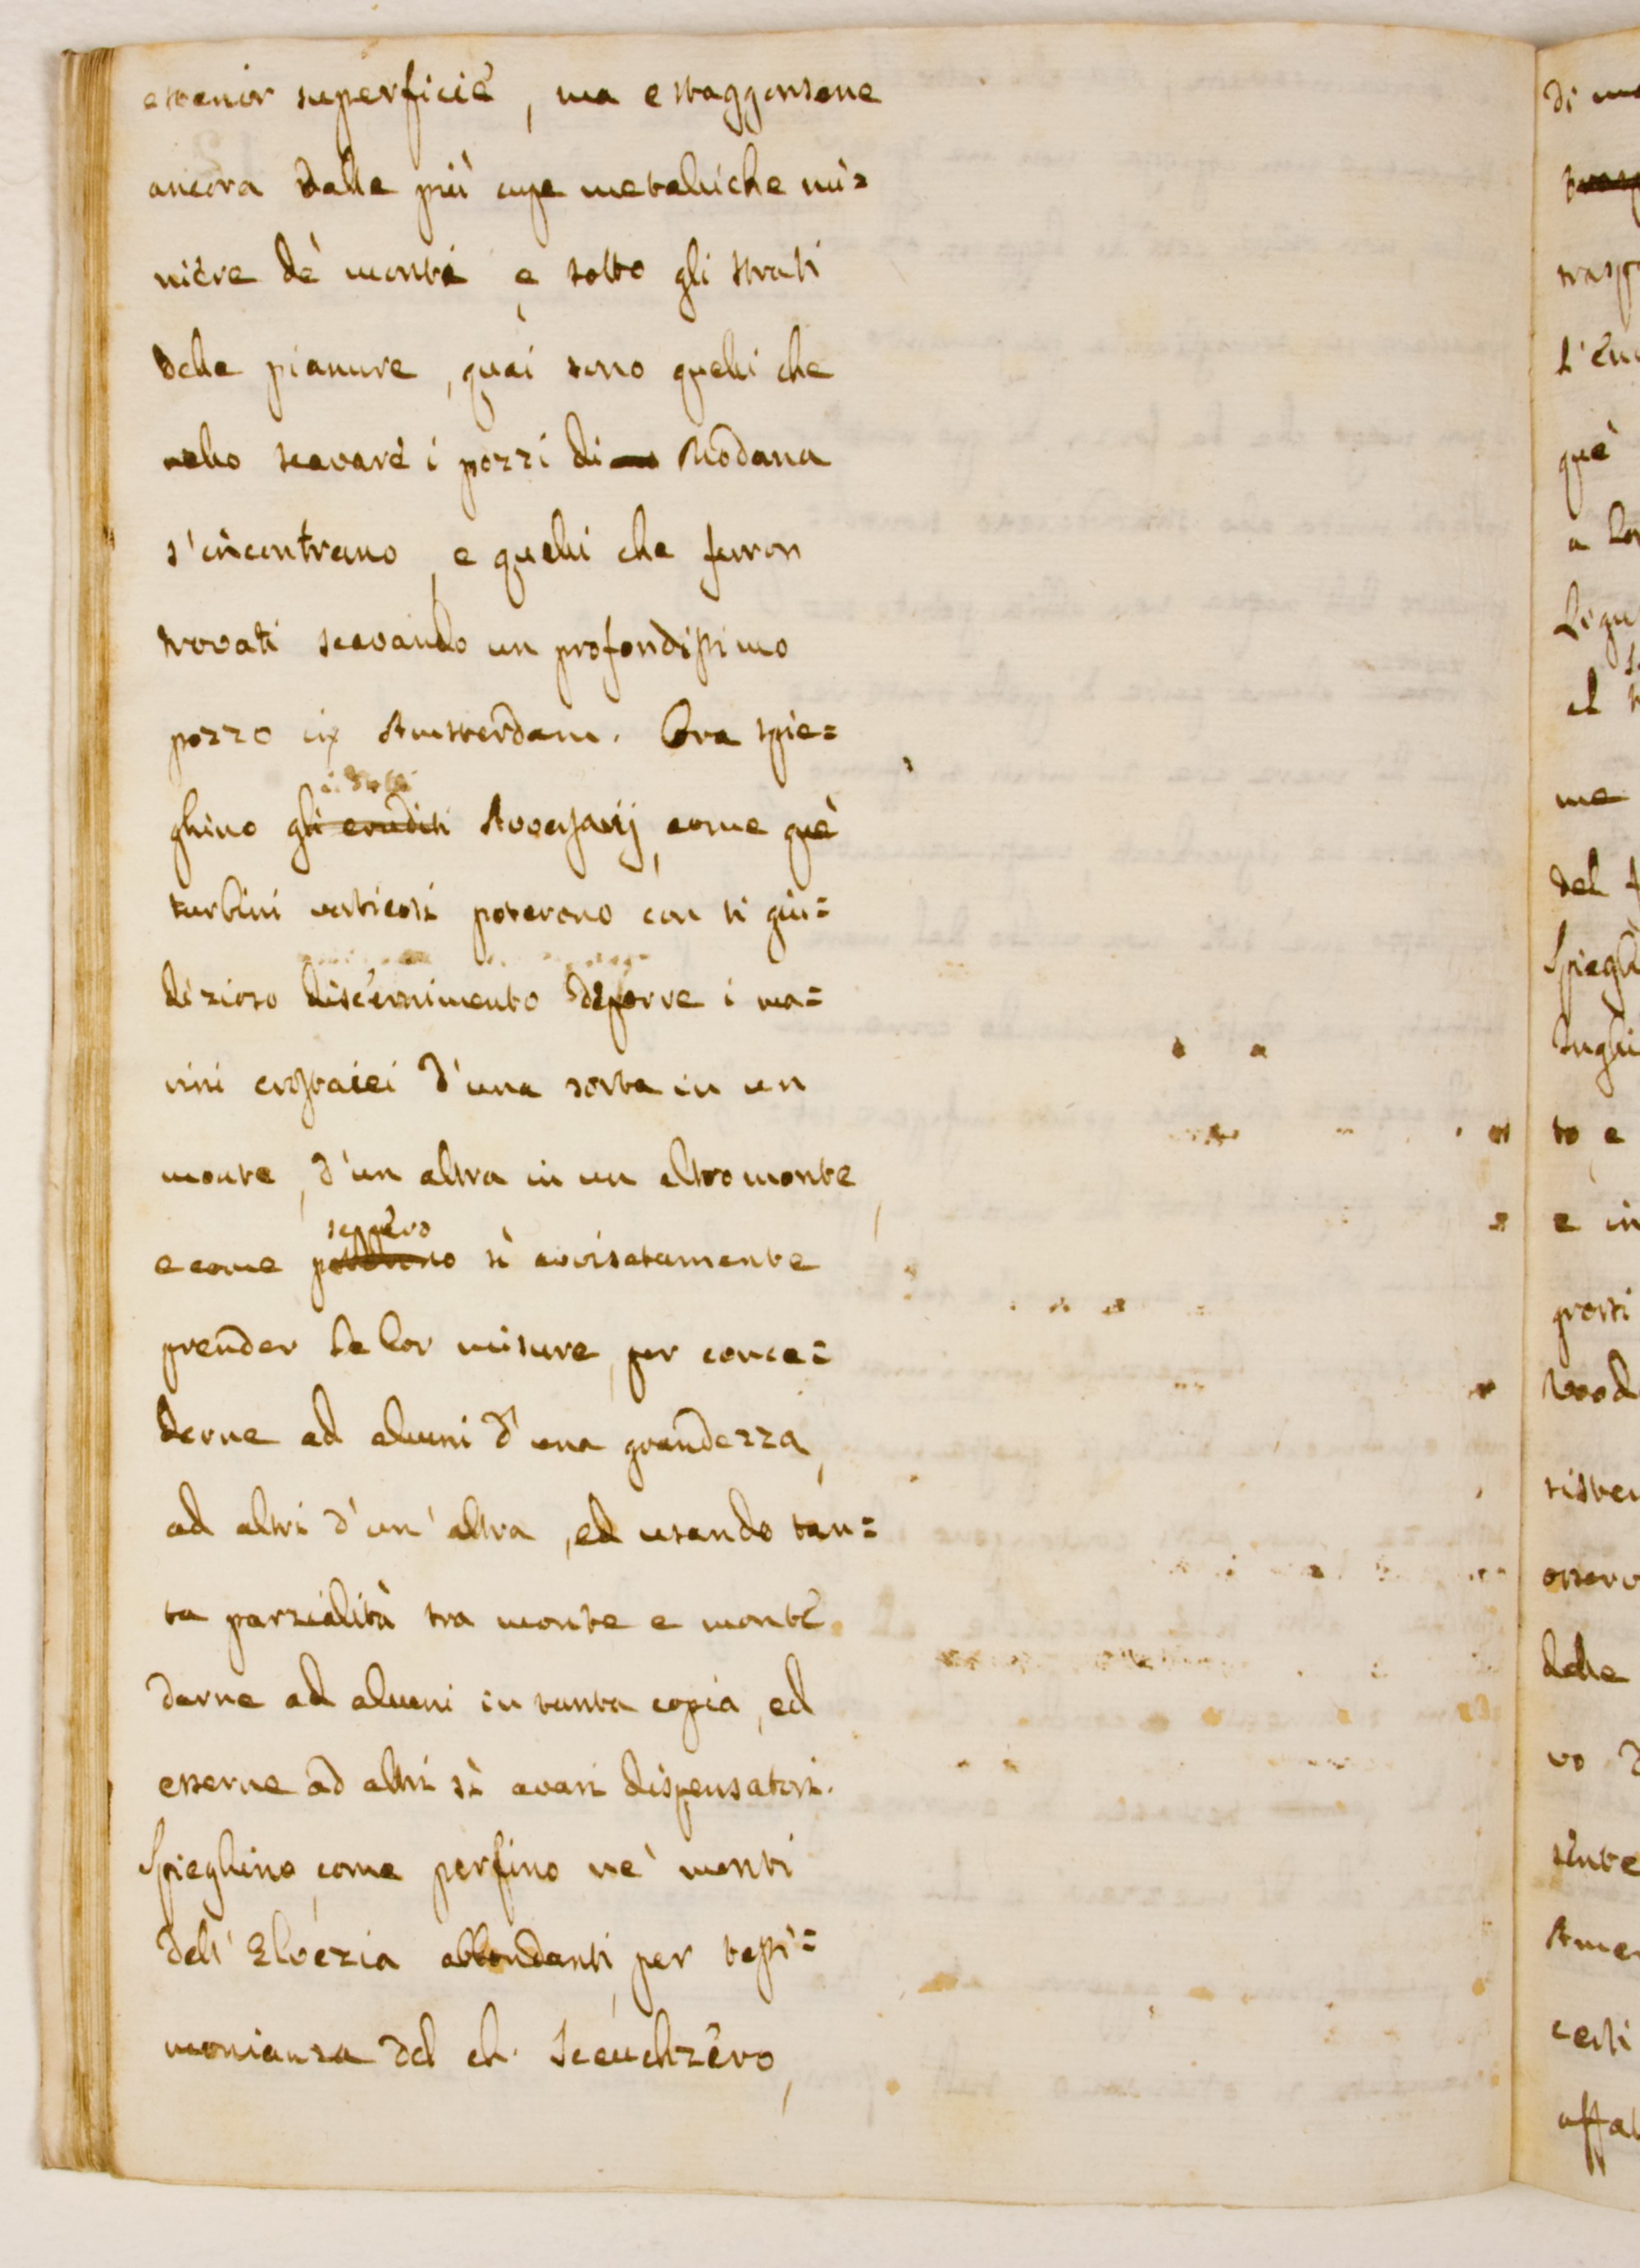 esterior superficie, ma estraggonsene
ancora dalle più cupe metalliche mi=
niere de' monti e sotto gli strati
delle pianure, quai sono quelli che
nello scavare i pozzi di Modana
s'incontrano, e quelli che furon
trovati scavando un profondissimo
pozzo in Amsterdam. Ora spie=
i dotti
ghino gli eruditi Avversarij, come que'
turbini vorticosi poterono con sì giu=
dizioso discernimento deporre i ma=
rini crostacei d'una sorta in un
monte, d'un altra in un altro monte,
seppero
e come poterono sì avvisatamente
prender le lor misure, per conce=
derne ad alcuni d'una grandezza,
ad altri d'un'altra, ed usando tan=
ta parzialità tra monte e monte
darne ad alcuni in tanta copia, ed
esserne ad altri sì avari dispensatori.
Spieghino, come perfino ne' monti
dell'Elvezia abbondanti, per testi=
monianza del ch. Sceuchzero,